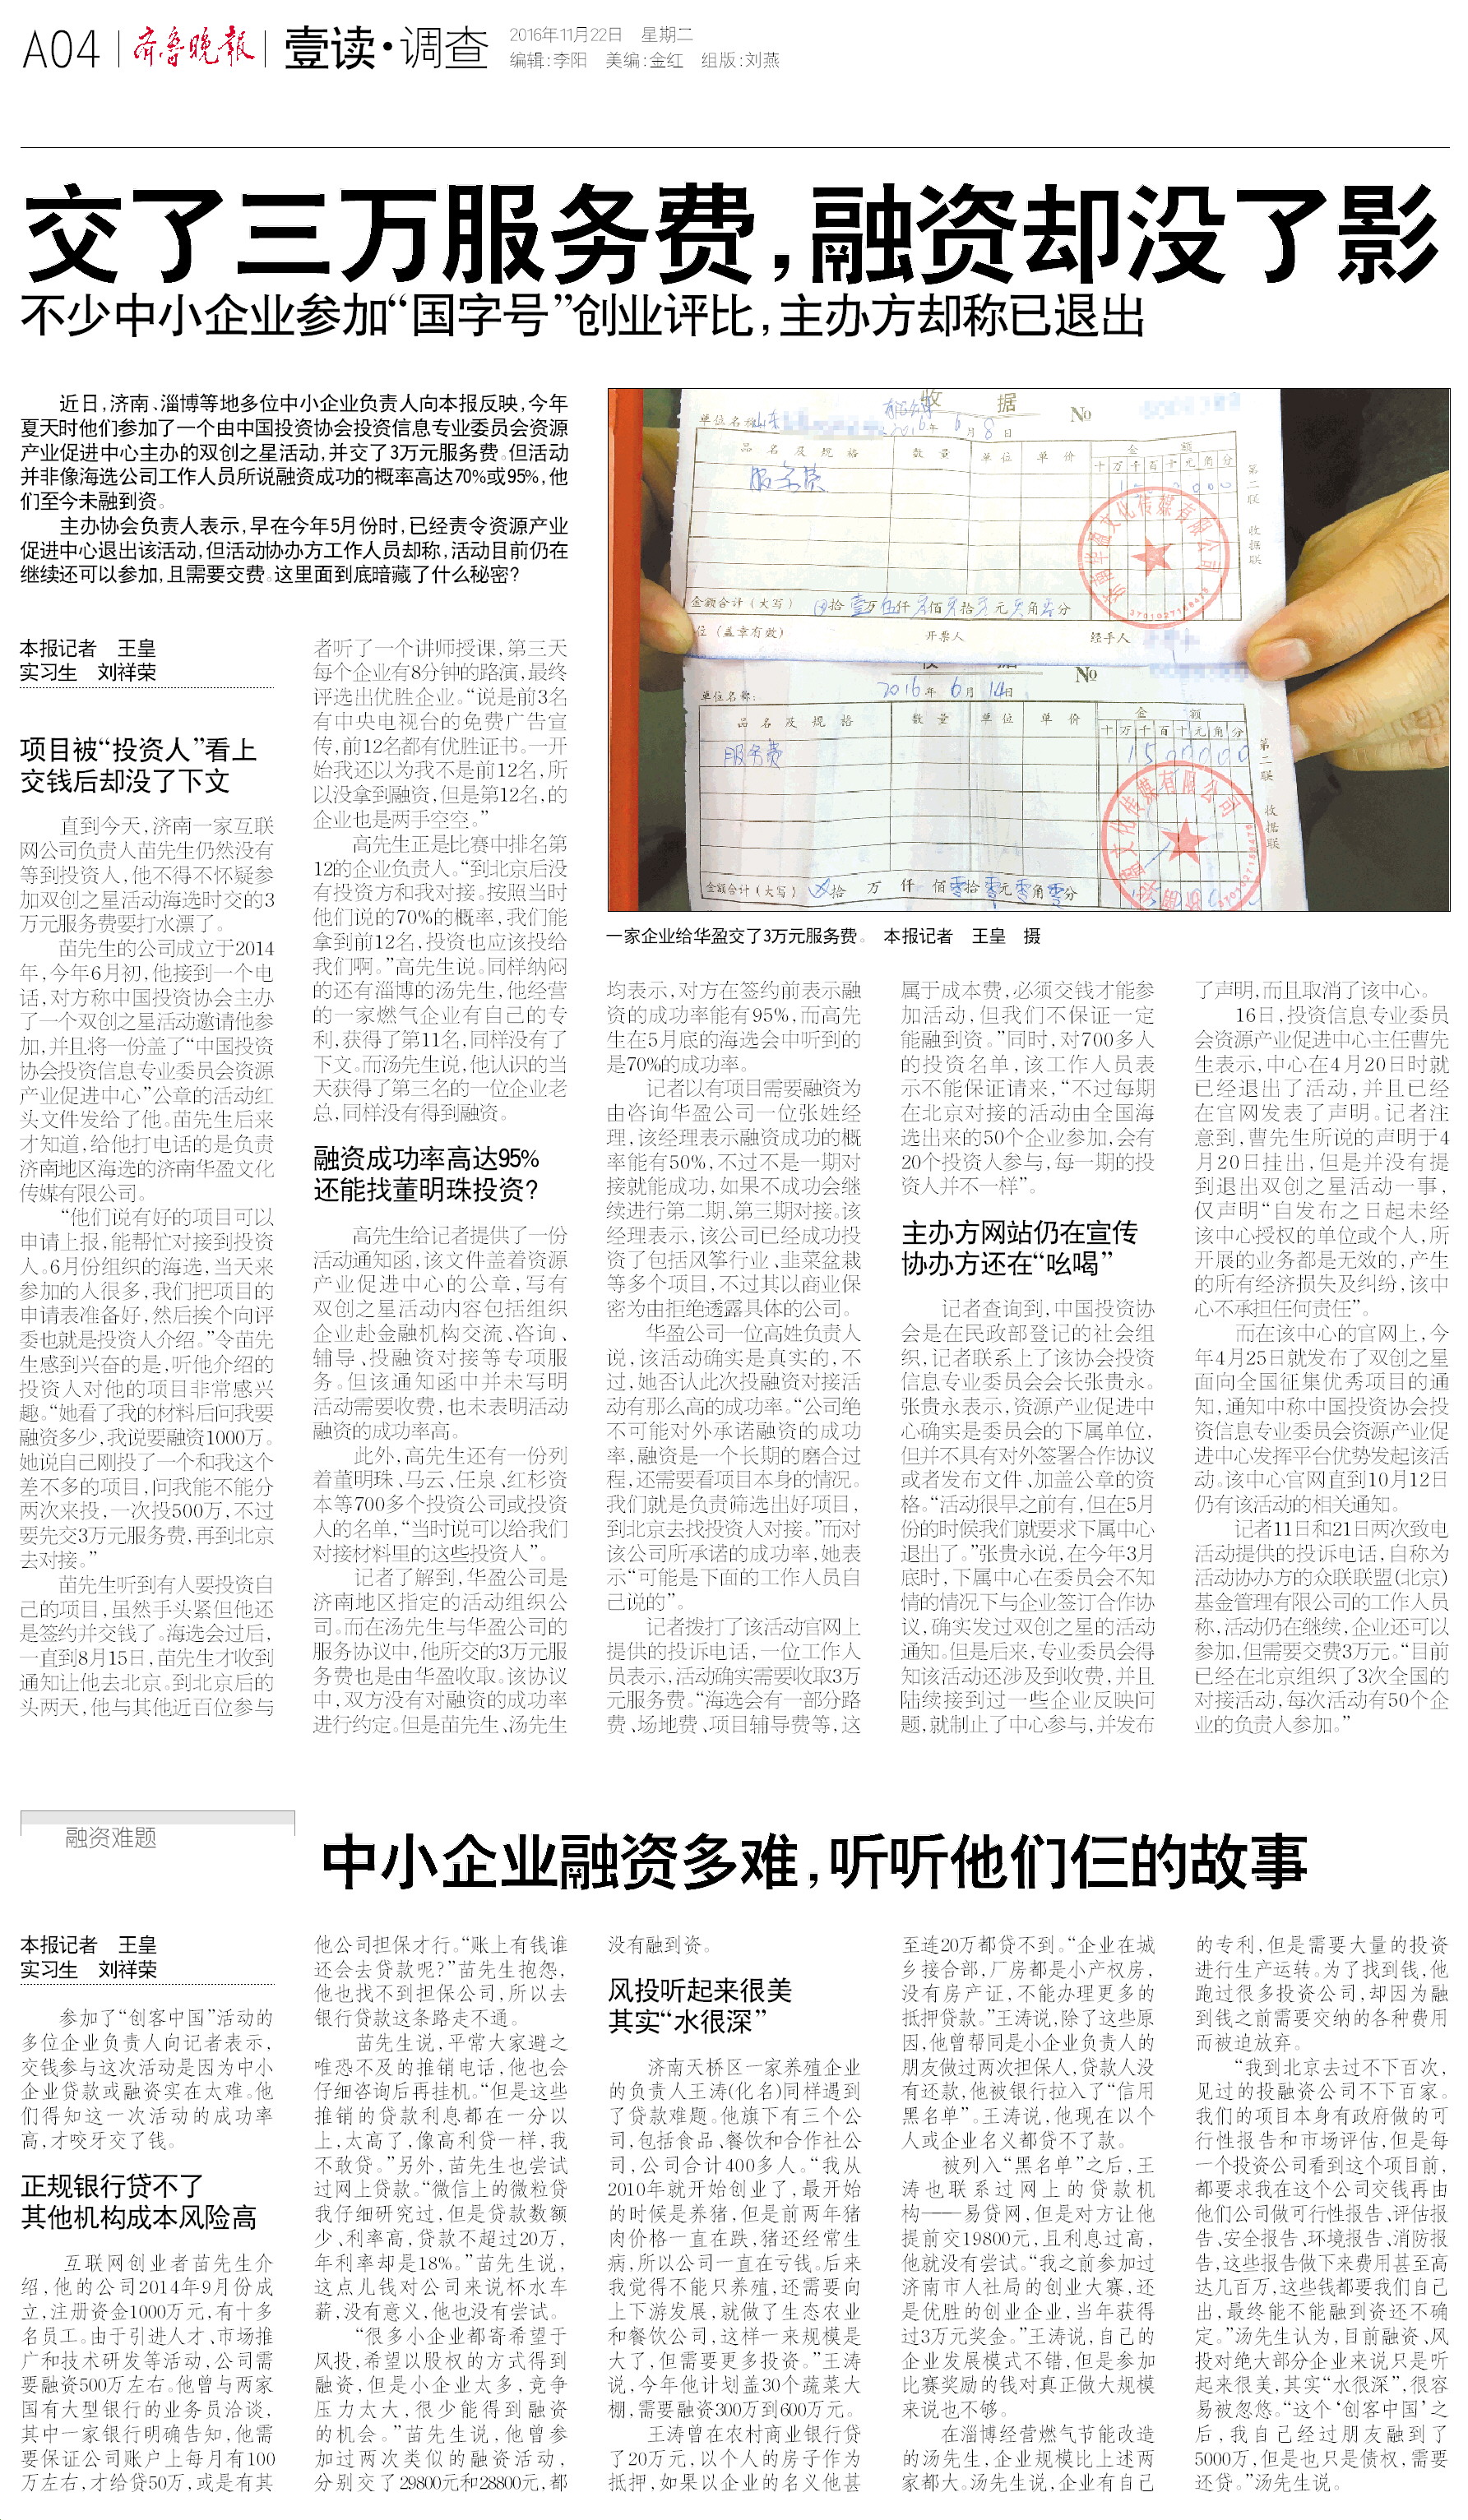 A04
齐鲁晚报
壹读·调查
2016年11月22日 星期二
编辑:李阳 美编:金红 组版:刘燕
交了三万服务费,融资却没了影
不少中小企业参加“国字号”创业评比,主办方却称已退出
近日,济南、淄博等地多位中小企业负责人向本报反映,今年
夏天时他们参加了一个由中国投资协会投资信息专业委员会资源
产业促进中心主办的双创之星活动,并交了3万元服务费。但活动
并非像海选公司工作人员所说融资成功的概率高达70%或95%,他
们至今未融到资。
主办协会负责人表示,早在今年5月份时,已经责令资源产业
促进中心退出该活动,但活动协办方工作人员却称,活动目前仍在
继续还可以参加,且需要交费。这里面到底暗藏了什么秘密?
本报记者 王皇
实习生 刘祥荣
项目被“投资人”看上
交钱后却没了下文
直到今天,济南一家互联
网公司负责人苗先生仍然没有
等到投资人,他不得不怀疑参
加双创之星活动海选时交的3
万元服务费要打水漂了。
苗先生的公司成立于2014
年,今年6月初,他接到一个电
话,对方称中国投资协会主办
了一个双创之星活动邀请他参
加,并且将一份盖了“中国投资
协会投资信息专业委员会资源
产业促进中心”公章的活动红
头文件发给了他。苗先生后来
才知道,给他打电话的是负责
济南地区海选的济南华盈文化
传媒有限公司。
“他们说有好的项目可以
申请上报,能帮忙对接到投资
人。6月份组织的海选,当天来
参加的人很多,我们把项目的
申请表准备好,然后挨个向评
委也就是投资人介绍。”令苗先
生感到兴奋的是,听他介绍的
投资人对他的项目非常感兴
趣。“她看了我的材料后问我要
融资多少,我说要融资1000万。
她说自己刚投了一个和我这个
差不多的项目,问我能不能分
两次来投,一次投500万,不过
要先交3万元服务费,再到北京
去对接。”
苗先生听到有人要投资自
己的项目,虽然手头紧但他还
是签约并交钱了。海选会过后,
一直到8月15日,苗先生才收到
通知让他去北京。到北京后的
头两天,他与其他近百位参与
者听了一个讲师授课,第三天
每个企业有8分钟的路演,最终
评选出优胜企业。“说是前3名
有中央电视台的免费广告宣
传,前12名都有优胜证书。一开
始我还以为我不是前12名,所
以没拿到融资,但是第12名,的
企业也是两手空空。”
高先生正是比赛中排名第
12的企业负责人。“到北京后没
有投资方和我对接。按照当时
他们说的70%的概率,我们能
拿到前12名,投资也应该投给
我们啊。”高先生说。同样纳闷
的还有淄博的汤先生,他经营
的一家燃气企业有自己的专
利,获得了第11名,同样没有了
下文。而汤先生说,他认识的当
天获得了第三名的一位企业老
总,同样没有得到融资。
融资成功率高达95%
还能找董明珠投资?
高先生给记者提供了一份
活动通知函,该文件盖着资源
产业促进中心的公章,写有
双创之星活动内容包括组织
企业赴金融机构交流、咨询、
辅导、投融资对接等专项服
务。但该通知函中并未写明
活动需要收费,也未表明活动
融资的成功率高。
此外,高先生还有一份列
着董明珠、马云、任泉、红杉资
本等700多个投资公司或投资
人的名单,“当时说可以给我们
对接材料里的这些投资人”。
记者了解到,华盈公司是
济南地区指定的活动组织公
司。而在汤先生与华盈公司的
服务协议中,他所交的3万元服
务费也是由华盈收取。该协议
中,双方没有对融资的成功率
进行约定。但是苗先生、汤先生
收 据
No
单位名称 山东 有限公司
2016年6月8日
品名及规格 数量 单位 单价 金额
十万千百十元角分
服务费
第二联 收据联
济南华盈文化传媒有限公司
3701027168475
金额合计(大写) 拾壹万伍仟零佰零拾零元零角零分
位(盖章有效) 开票人 经手人
收 据
No
单位名称: 2016年6月14日
品名及规格 数量 单位 单价 金额
十万千百十元角分
服务费 1500000
第二联 收据联
金额合计(大写) 拾 万 仟 佰零拾零元零角零分
一家企业给华盈交了3万元服务费。 本报记者 王皇 摄
均表示,对方在签约前表示融
资的成功率能有95%,而高先
生在5月底的海选会中听到的
是70%的成功率。
记者以有项目需要融资为
由咨询华盈公司一位张姓经
理,该经理表示融资成功的概
率能有50%,不过不是一期对
接就能成功,如果不成功会继
续进行第二期、第三期对接。该
经理表示,该公司已经成功投
资了包括风筝行业、韭菜盆栽
等多个项目,不过其以商业保
密为由拒绝透露具体的公司。
华盈公司一位高姓负责人
说,该活动确实是真实的,不
过,她否认此次投融资对接活
动有那么高的成功率。“公司绝
不可能对外承诺融资的成功
率,融资是一个长期的磨合过
程,还需要看项目本身的情况。
我们就是负责筛选出好项目,
到北京去找投资人对接。”而对
该公司所承诺的成功率,她表
示“可能是下面的工作人员自
己说的”。
记者拨打了该活动官网上
提供的投诉电话,一位工作人
员表示,活动确实需要收取3万
元服务费。“海选会有一部分路
费、场地费、项目辅导费等,这
属于成本费,必须交钱才能参
加活动,但我们不保证一定
能融到资。”同时,对700多人
的投资名单,该工作人员表
示不能保证请来,“不过每期
在北京对接的活动由全国海
选出来的50个企业参加,会有
20个投资人参与,每一期的投
资人并不一样”。
主办方网站仍在宣传
协办方还在“吆喝”
记者查询到,中国投资协
会是在民政部登记的社会组
织,记者联系上了该协会投资
信息专业委员会会长张贵永。
张贵永表示,资源产业促进中
心确实是委员会的下属单位,
但并不具有对外签署合作协议
或者发布文件、加盖公章的资
格。“活动很早之前有,但在5月
份的时候我们就要求下属中心
退出了。”张贵永说,在今年3月
底时,下属中心在委员会不知
情的情况下与企业签订合作协
议,确实发过双创之星的活动
通知。但是后来,专业委员会得
知该活动还涉及到收费,并且
陆续接到过一些企业反映问
题,就制止了中心参与,并发布
了声明,而且取消了该中心。
16日,投资信息专业委员
会资源产业促进中心主任曹先
生表示,中心在4月20日时就
已经退出了活动,并且已经
在官网发表了声明。记者注
意到,曹先生所说的声明于4
月20日挂出,但是并没有提
到退出双创之星活动一事,
仅声明“自发布之日起未经
该中心授权的单位或个人,所
开展的业务都是无效的,产生
的所有经济损失及纠纷,该中
心不承担任何责任”。
而在该中心的官网上,今
年4月25日就发布了双创之星
面向全国征集优秀项目的通
知,通知中称中国投资协会投
资信息专业委员会资源产业促
进中心发挥平台优势发起该活
动。该中心官网直到10月12日
仍有该活动的相关通知。
记者11日和21日两次致电
活动提供的投诉电话,自称为
活动协办方的众联联盟(北京)
基金管理有限公司的工作人员
称,活动仍在继续,企业还可以
参加,但需要交费3万元。“目前
已经在北京组织了3次全国的
对接活动,每次活动有50个企
业的负责人参加。”
融资难题
中小企业融资多难,听听他们仨的故事
本报记者 王皇
实习生 刘祥荣
参加了“创客中国”活动的
多位企业负责人向记者表示,
交钱参与这次活动是因为中小
企业贷款或融资实在太难。他
们得知这一次活动的成功率
高,才咬牙交了钱。
正规银行贷不了
其他机构成本风险高
互联网创业者苗先生介
绍,他的公司2014年9月份成
立,注册资金1000万元,有十多
名员工。由于引进人才、市场推
广和技术研发等活动,公司需
要融资500万左右。他曾与两家
国有大型银行的业务员洽谈,
其中一家银行明确告知,他需
要保证公司账户上每月有100
万左右,才给贷50万,或是有其
他公司担保才行。“账上有钱谁
还会去贷款呢?”苗先生抱怨,
他也找不到担保公司,所以去
银行贷款这条路走不通。
苗先生说,平常大家避之
唯恐不及的推销电话,他也会
仔细咨询后再挂机。“但是这些
推销的贷款利息都在一分以
上,太高了,像高利贷一样,我
不敢贷。”另外,苗先生也尝试
过网上贷款。“微信上的微粒贷
我仔细研究过,但是贷款数额
少、利率高,贷款不超过20万,
年利率却是18%。”苗先生说,
这点儿钱对公司来说杯水车
薪,没有意义,他也没有尝试。
“很多小企业都寄希望于
风投,希望以股权的方式得到
融资,但是小企业太多,竞争
压力太大,很少能得到融资
的机会。”苗先生说,他曾参
加过两次类似的融资活动,
分别交了29800元和28800元,都
没有融到资。
风投听起来很美
其实“水很深”
济南天桥区一家养殖企业
的负责人王涛(化名)同样遇到
了贷款难题。他旗下有三个公
司,包括食品、餐饮和合作社公
司,公司合计400多人。“我从
2010年就开始创业了,最开始
的时候是养猪,但是前两年猪
肉价格一直在跌,猪还经常生
病,所以公司一直在亏钱。后来
我觉得不能只养殖,还需要向
上下游发展,就做了生态农业
和餐饮公司,这样一来规模是
大了,但需要更多投资。”王涛
说,今年他计划盖30个蔬菜大
棚,需要融资300万到600万元。
王涛曾在农村商业银行贷
了20万元,以个人的房子作为
抵押,如果以企业的名义他甚
至连20万都贷不到。“企业在城
乡接合部,厂房都是小产权房,
没有房产证,不能办理更多的
抵押贷款。”王涛说,除了这些原
因,他曾帮同是小企业负责人的
朋友做过两次担保人,贷款人没
有还款,他被银行拉入了“信用
黑名单”。王涛说,他现在以个
人或企业名义都贷不了款。
被列入“黑名单”之后,王
涛也联系过网上的贷款机
构——易贷网,但是对方让他
提前交19800元,且利息过高,
他就没有尝试。“我之前参加过
济南市人社局的创业大赛,还
是优胜的创业企业,当年获得
过3万元奖金。”王涛说,自己的
企业发展模式不错,但是参加
比赛奖励的钱对真正做大规模
来说也不够。
在淄博经营燃气节能改造
的汤先生,企业规模比上述两
家都大。汤先生说,企业有自己
的专利,但是需要大量的投资
进行生产运转。为了找到钱,他
跑过很多投资公司,却因为融
到钱之前需要交纳的各种费用
而被迫放弃。
“我到北京去过不下百次,
见过的投融资公司不下百家。
我们的项目本身有政府做的可
行性报告和市场评估,但是每
一个投资公司看到这个项目前,
都要求我在这个公司交钱再由
他们公司做可行性报告、评估报
告、安全报告、环境报告、消防报
告,这些报告做下来费用甚至高
达几百万,这些钱都要我们自己
出,最终能不能融到资还不确
定。”汤先生认为,目前融资、风
投对绝大部分企业来说只是听
起来很美,其实“水很深”,很容
易被忽悠。“这个‘创客中国’之
后,我自己经过朋友融到了
5000万,但是也只是债权,需要
还贷。”汤先生说。